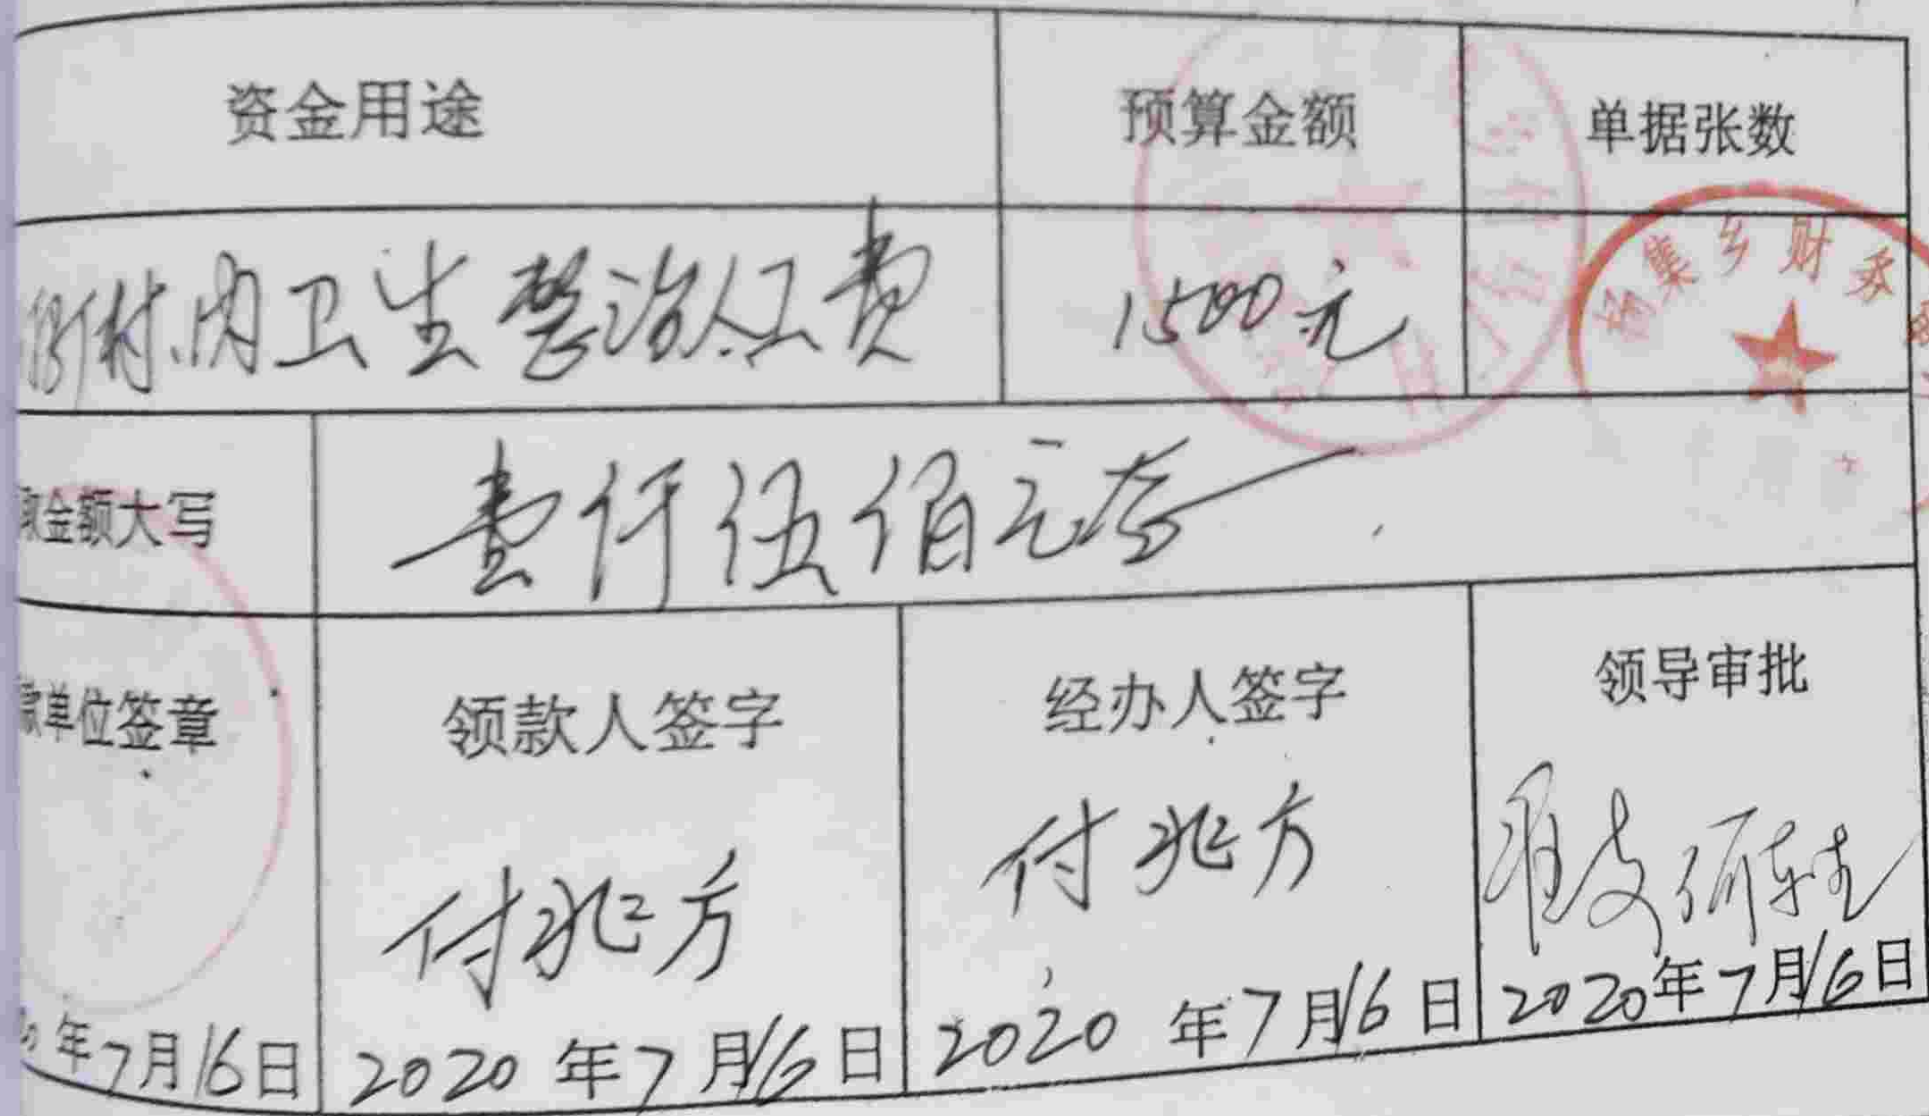 资金用途 预算金额 单据张数
村内卫生整治人工费 1500元
杨集乡财务
金额大写 壹仟伍佰元态
单位签章 领款人签字 经办人签字 领导审批
付兆方 付兆方
年7月16日 2020年7月16日 2020年7月16日 2020年7月16日